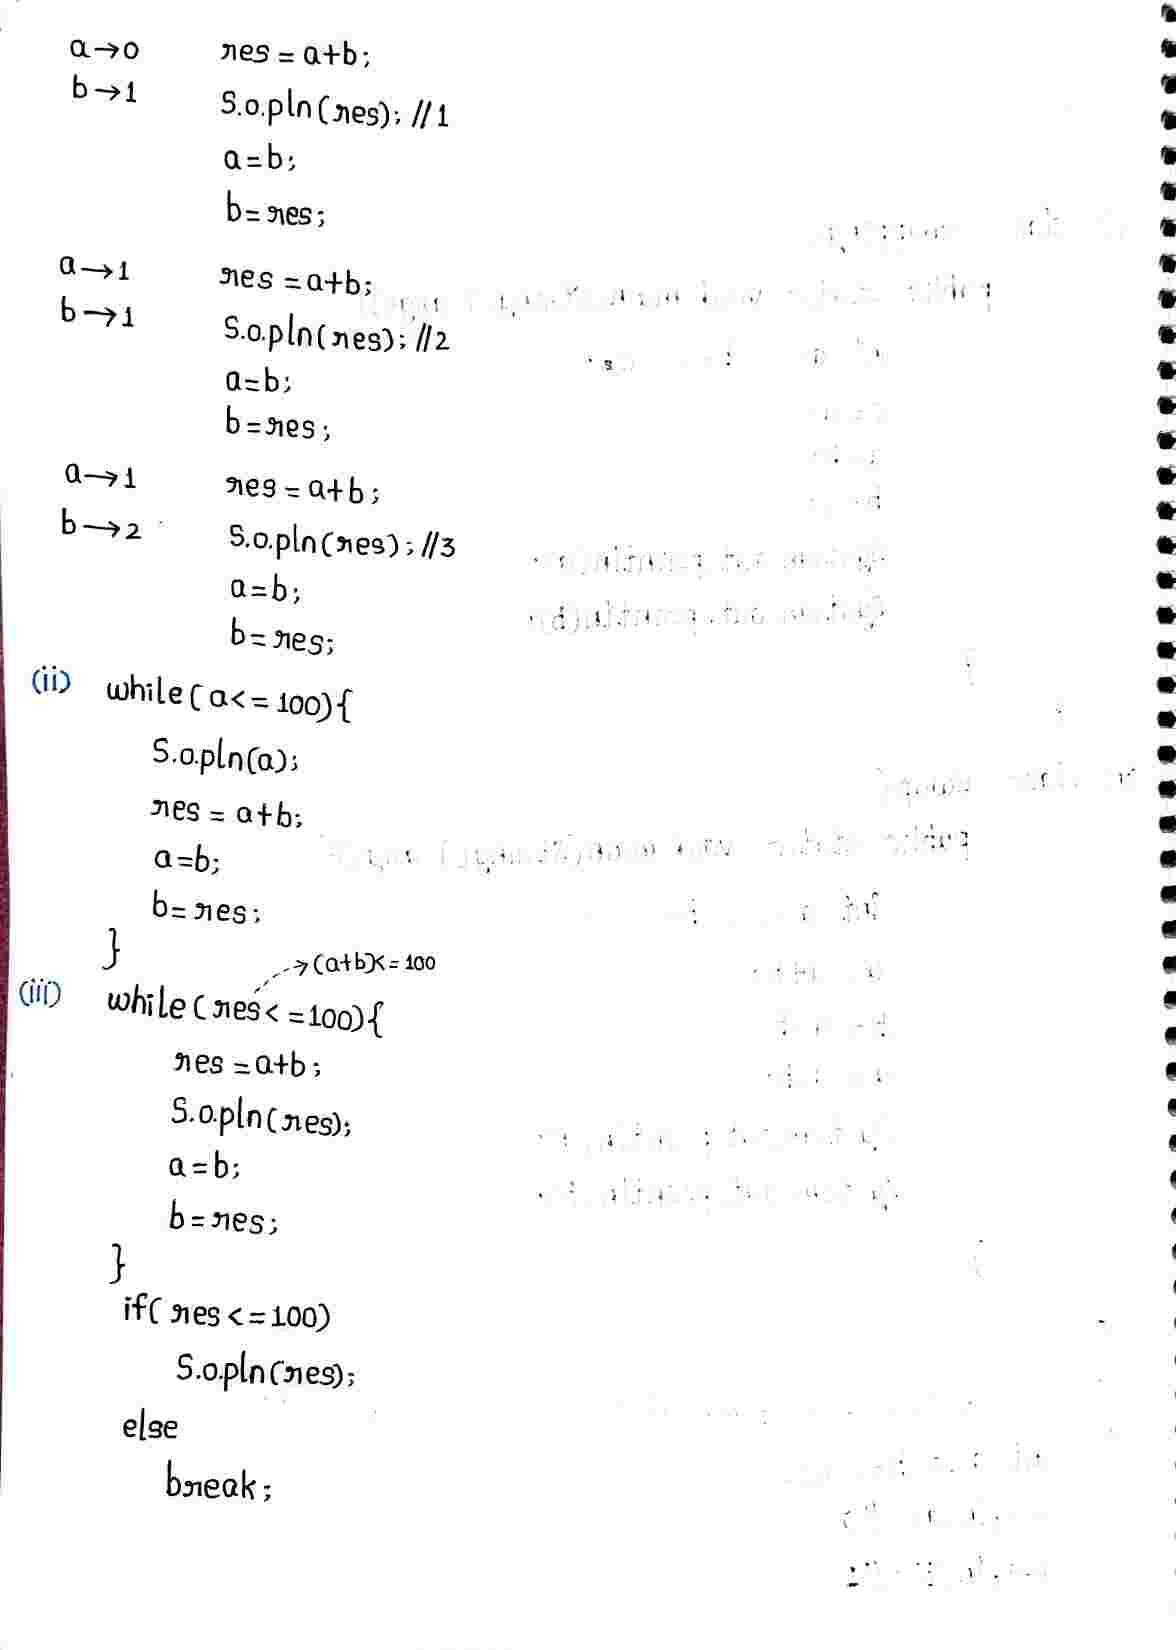 a→0 res = a+b;
b→1 S.o.pln(res); //1
a=b;
b=res;
a→1 res = a+b;
b→1 S.o.pln(res); //2
a=b;
b=res;
a→1 res = a+b;
b→2 S.o.pln(res); //3
a=b;
b=res;
(ii) while(a<=100){
S.o.pln(a);
res = a+b;
a=b;
b=res;
}
→(a+b)<=100
(iii) while(res<=100){
res = a+b;
S.o.pln(res);
a=b;
b=res;
}
if(res<=100)
S.o.pln(res);
else
break;